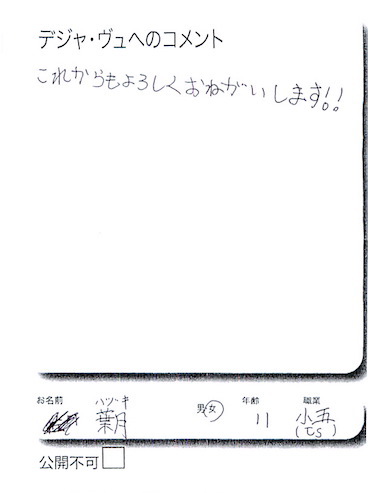 デジャ・ヴュへのコメント
これからもよろしくおねがいします!!
お名前 ハヅキ 男女 年齢 職業
葉月 11 小五
公開不可